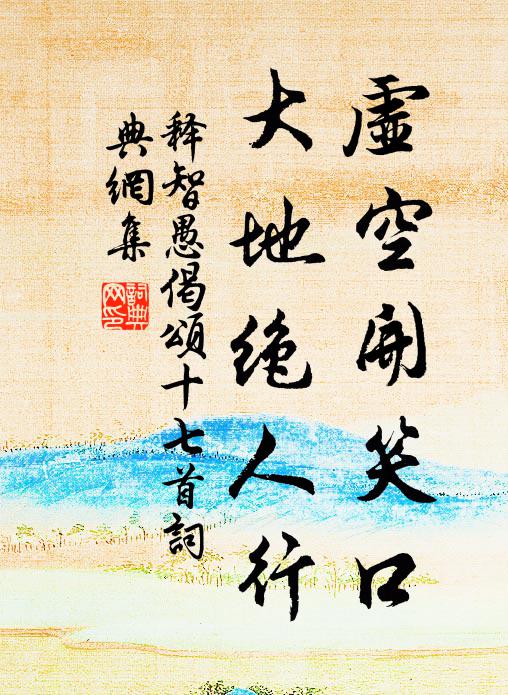 虛空開笑口
大地絕人行
釋智愚偈頌十七首詞
典網集
詞典
网印